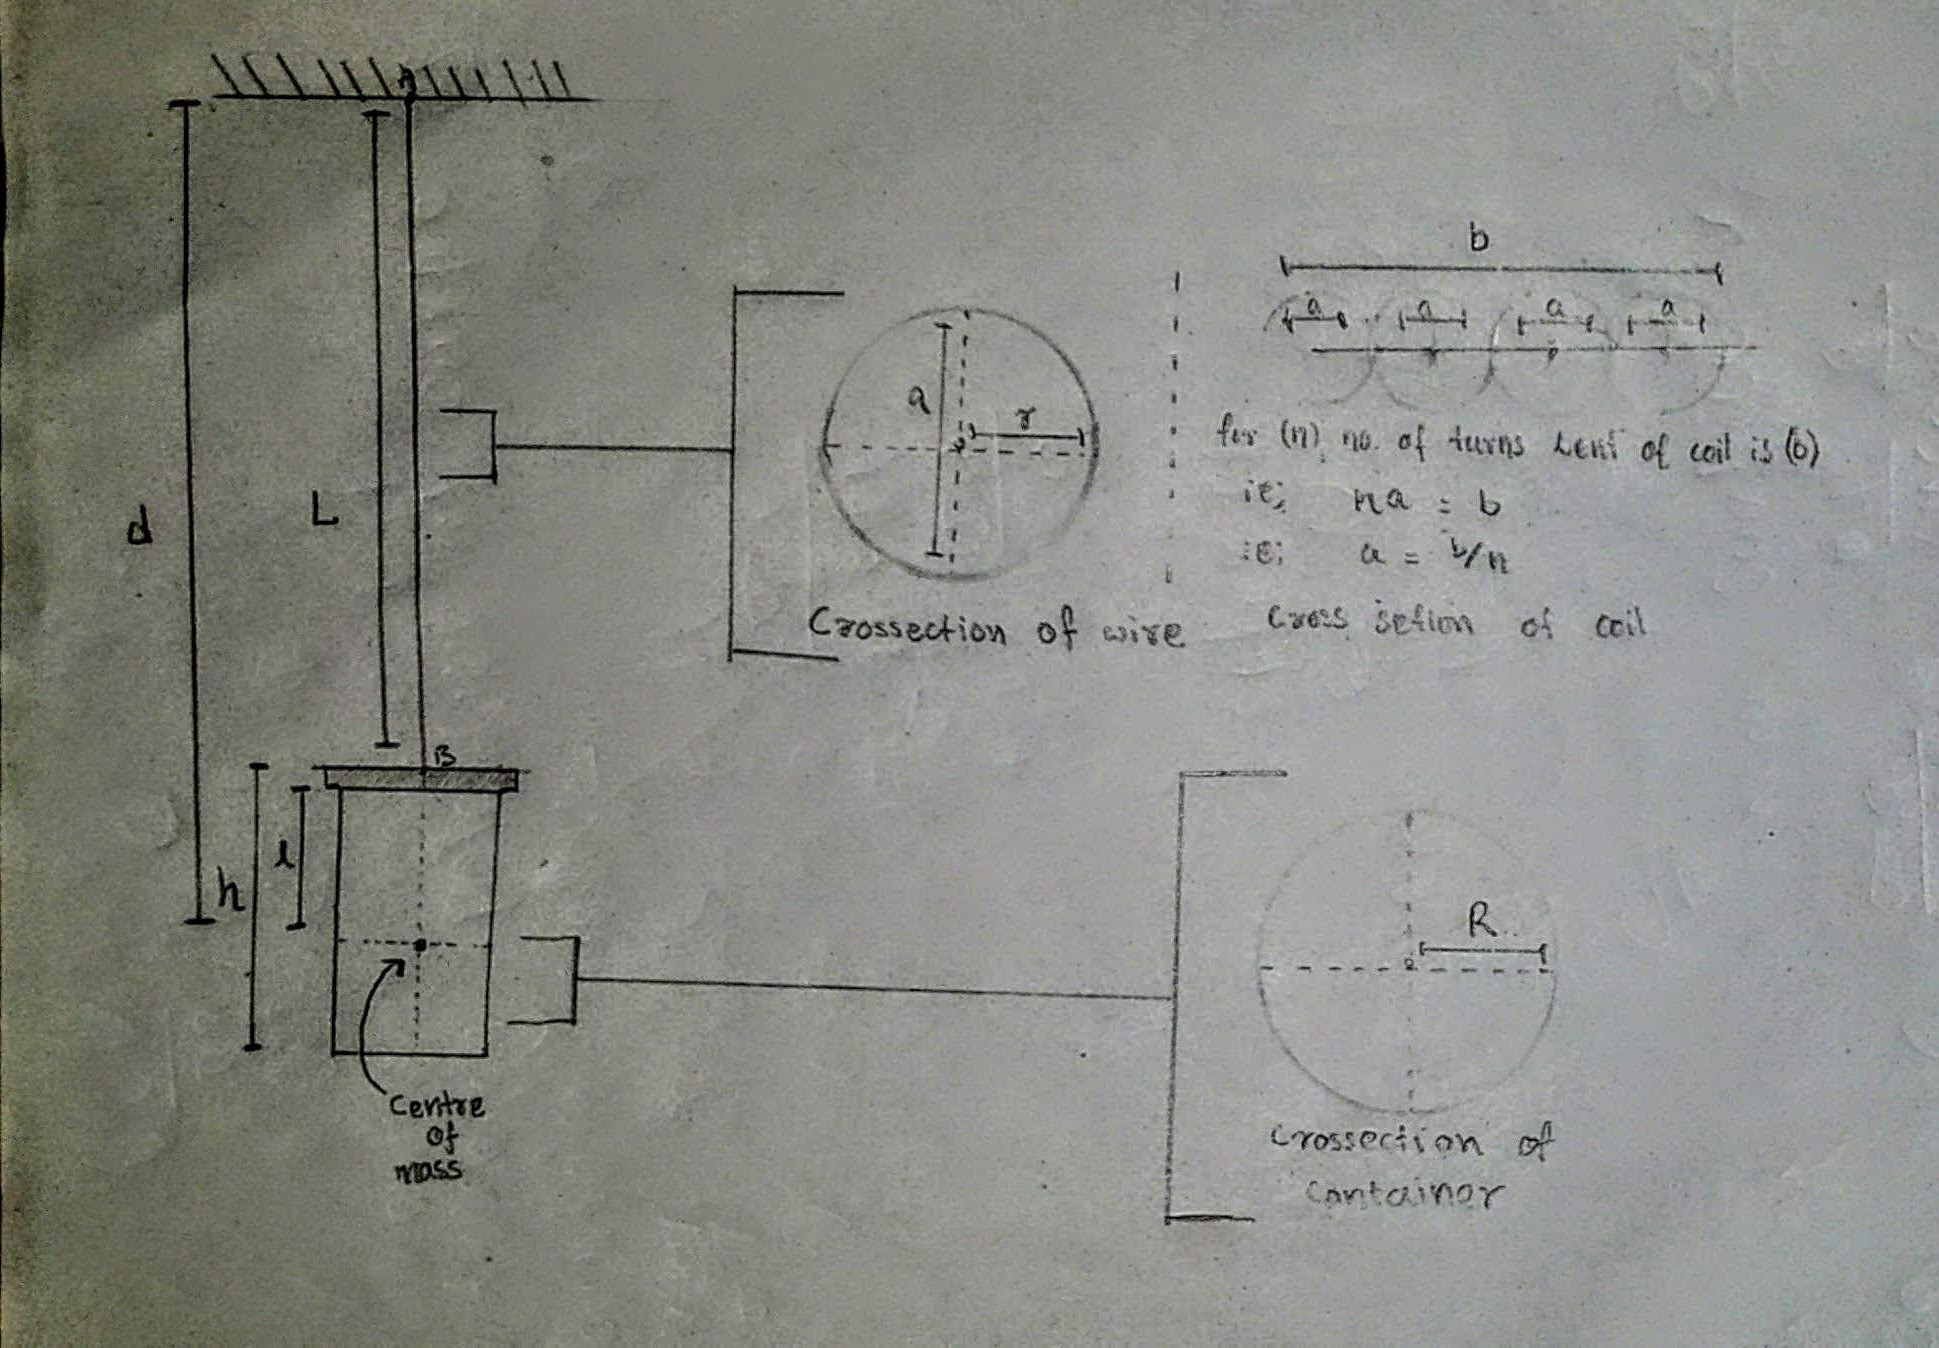 A
d
L
B
h
l
Centre
of
mass
a
r
Crossection of wire
b
a a a a
for (n) no. of turns Lent of coil is (b)
ie; na = b
ie; a = b/n
Cross setion of coil
R
Crossection of
Container